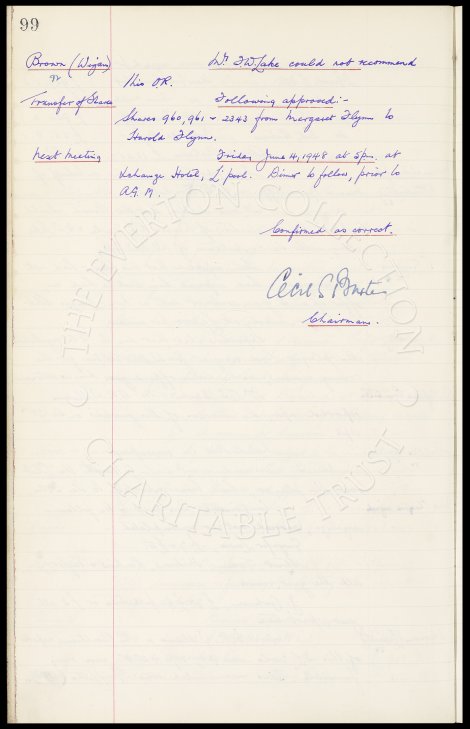 99
Brown (Wigan) Mr T.W. Lake could not recommend
this O.R.
Transfer of Shares Following approved :-
Shares 960, 961 & 2343 from Margaret Flynn to
Harold Flynn.
Next Meeting Friday June 4, 1948 at 5pm. at
Exchange Hotel, L'pool. Dinner to follow, prior to
A.G.M.
Confirmed as correct.
Cecil S Baxter
Chairman.
THE EVERTON COLLECTION
CHARITABLE TRUST